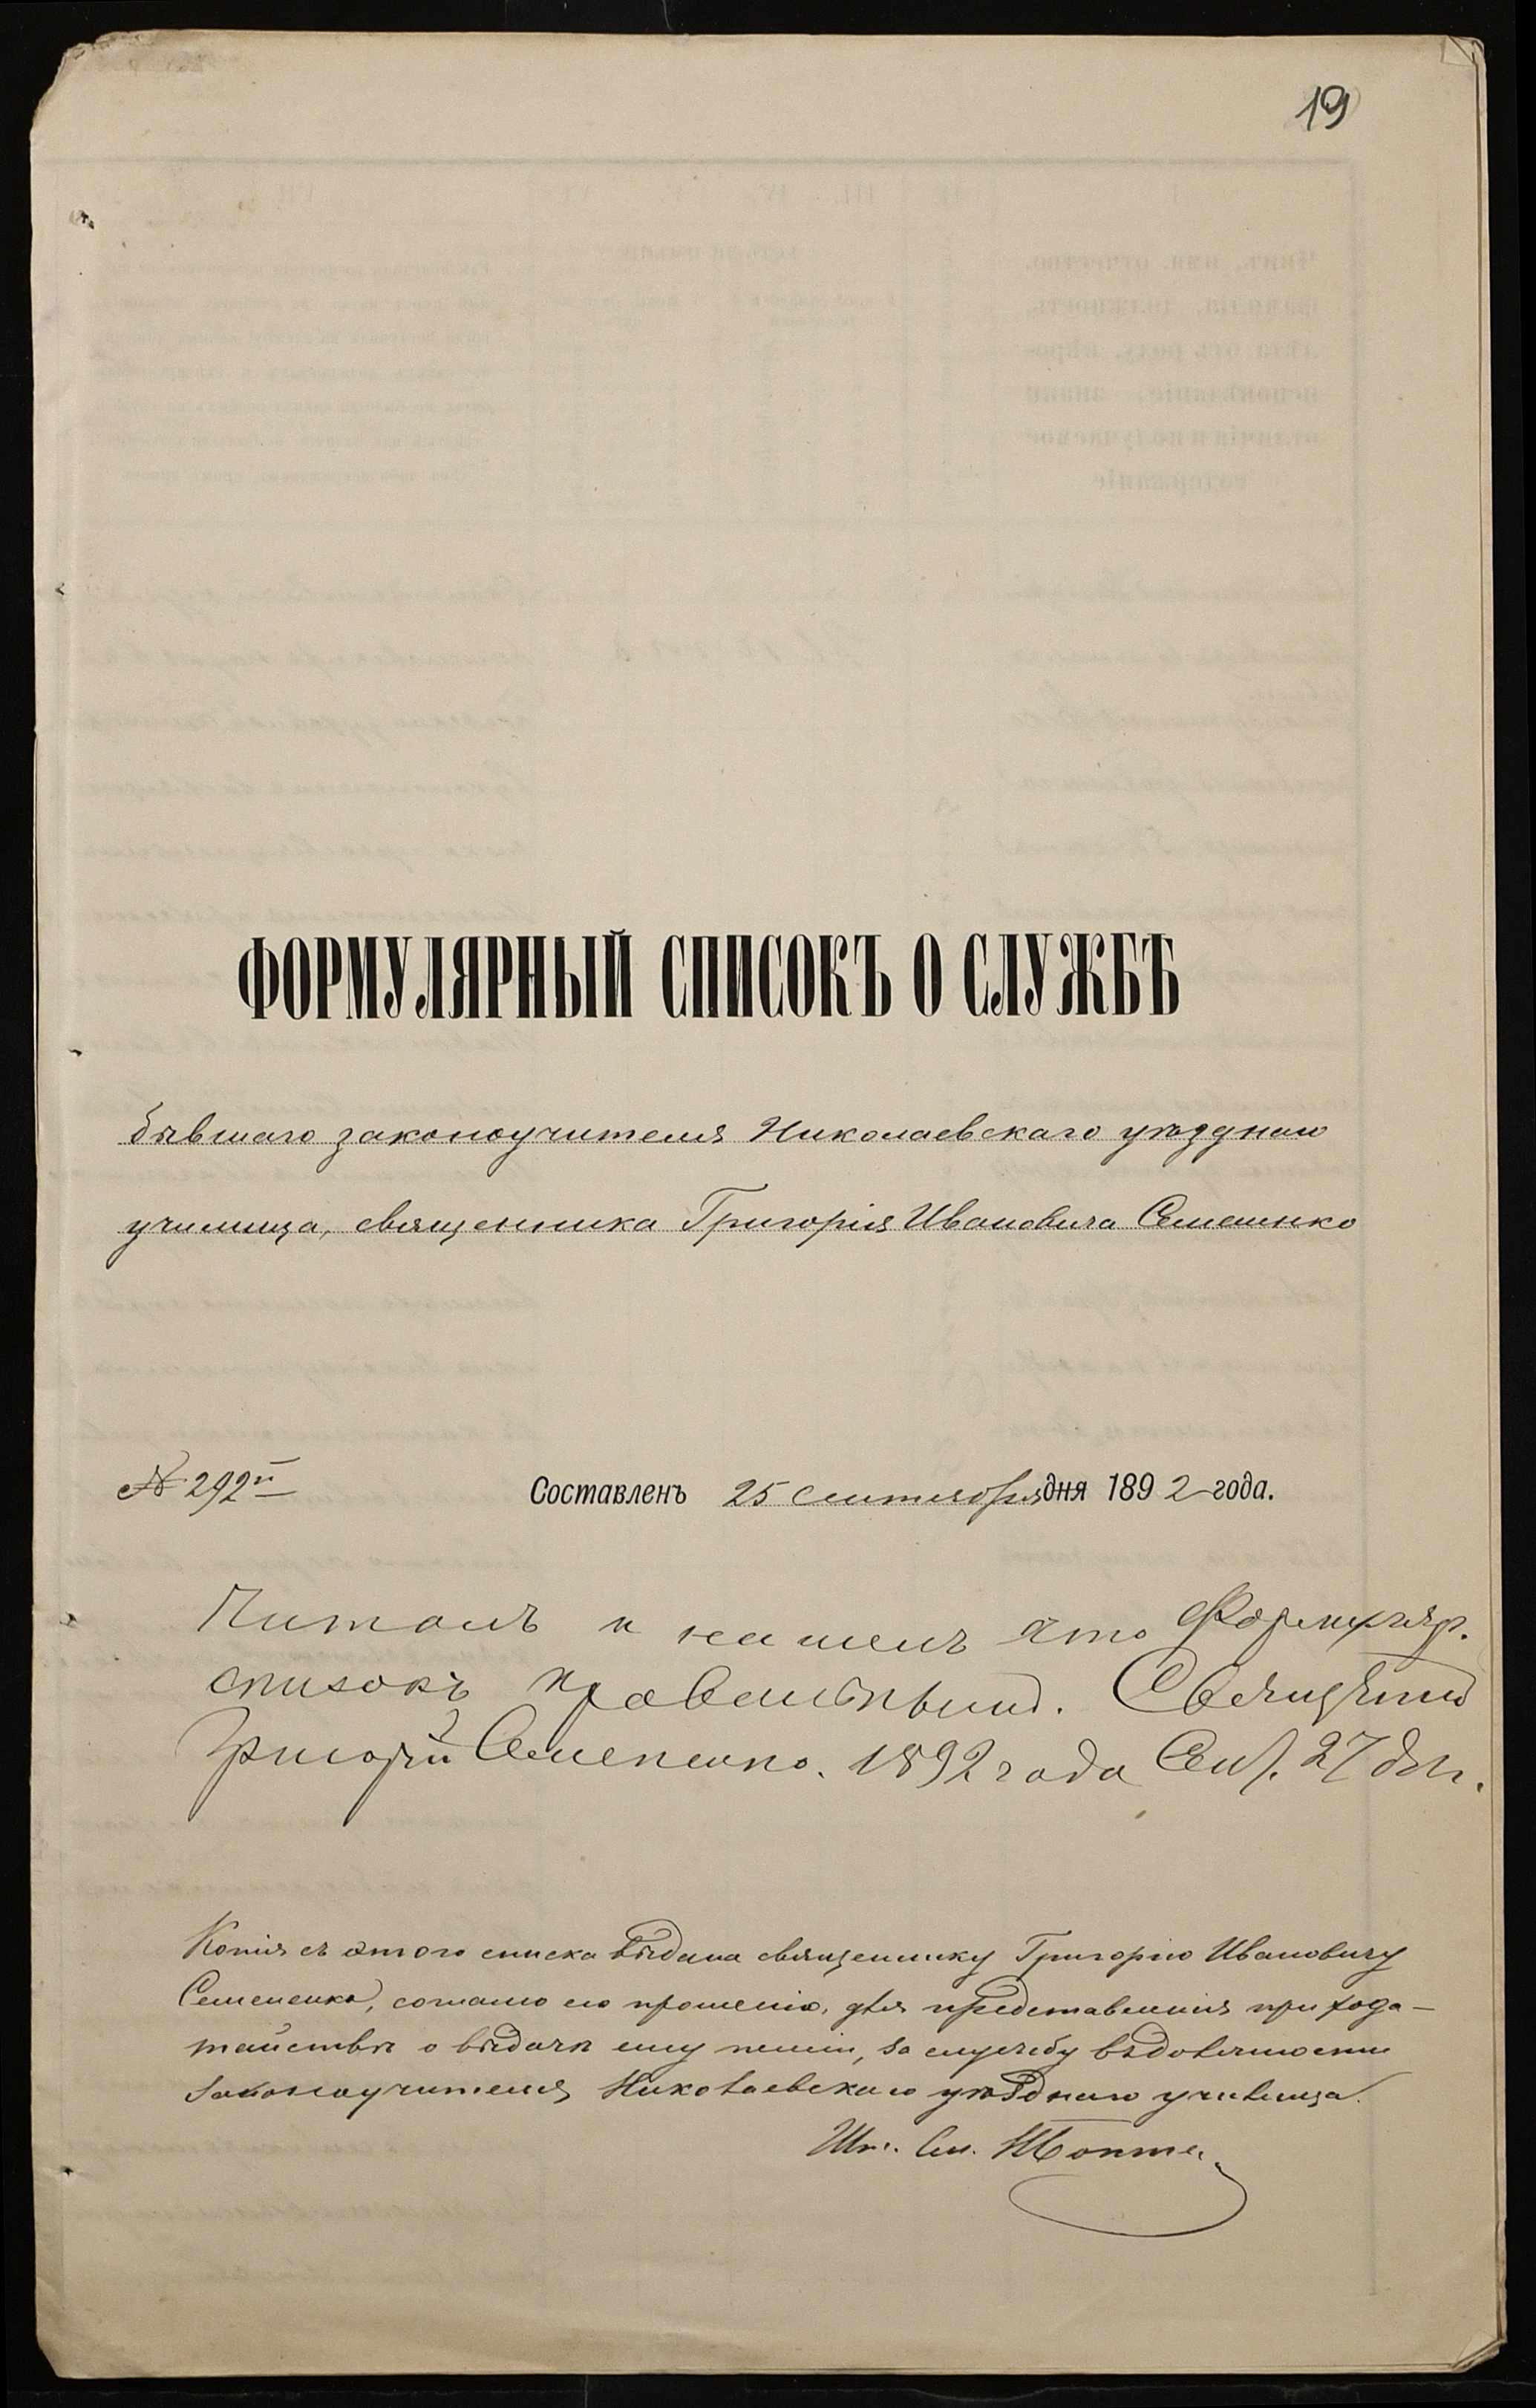 19
ФОРМУЛЯРНЫЙ СПИСОКЪ О СЛУЖБѢ
бывшаго законоучителя Николаевскаго уѣзднаго
училища, священника Григорія Ивановича Семененко
№ 292й
Составленъ 25 сентября дня 1892 года.
Читалъ и нашелъ что Формуляр.
списокъ правильный. Священникъ
Григорій Семененко. 1892 года Сен. 27 дн.
Копія съ этого списка выдана священнику Григорію Ивановичу
Семененко, согласно его прошенію, для представленія при хода-
тайствѣ о выдачѣ ему пенсіи, за службу въ должности
законоучителя Николаевскаго уѣзднаго училища.
Шт. См.